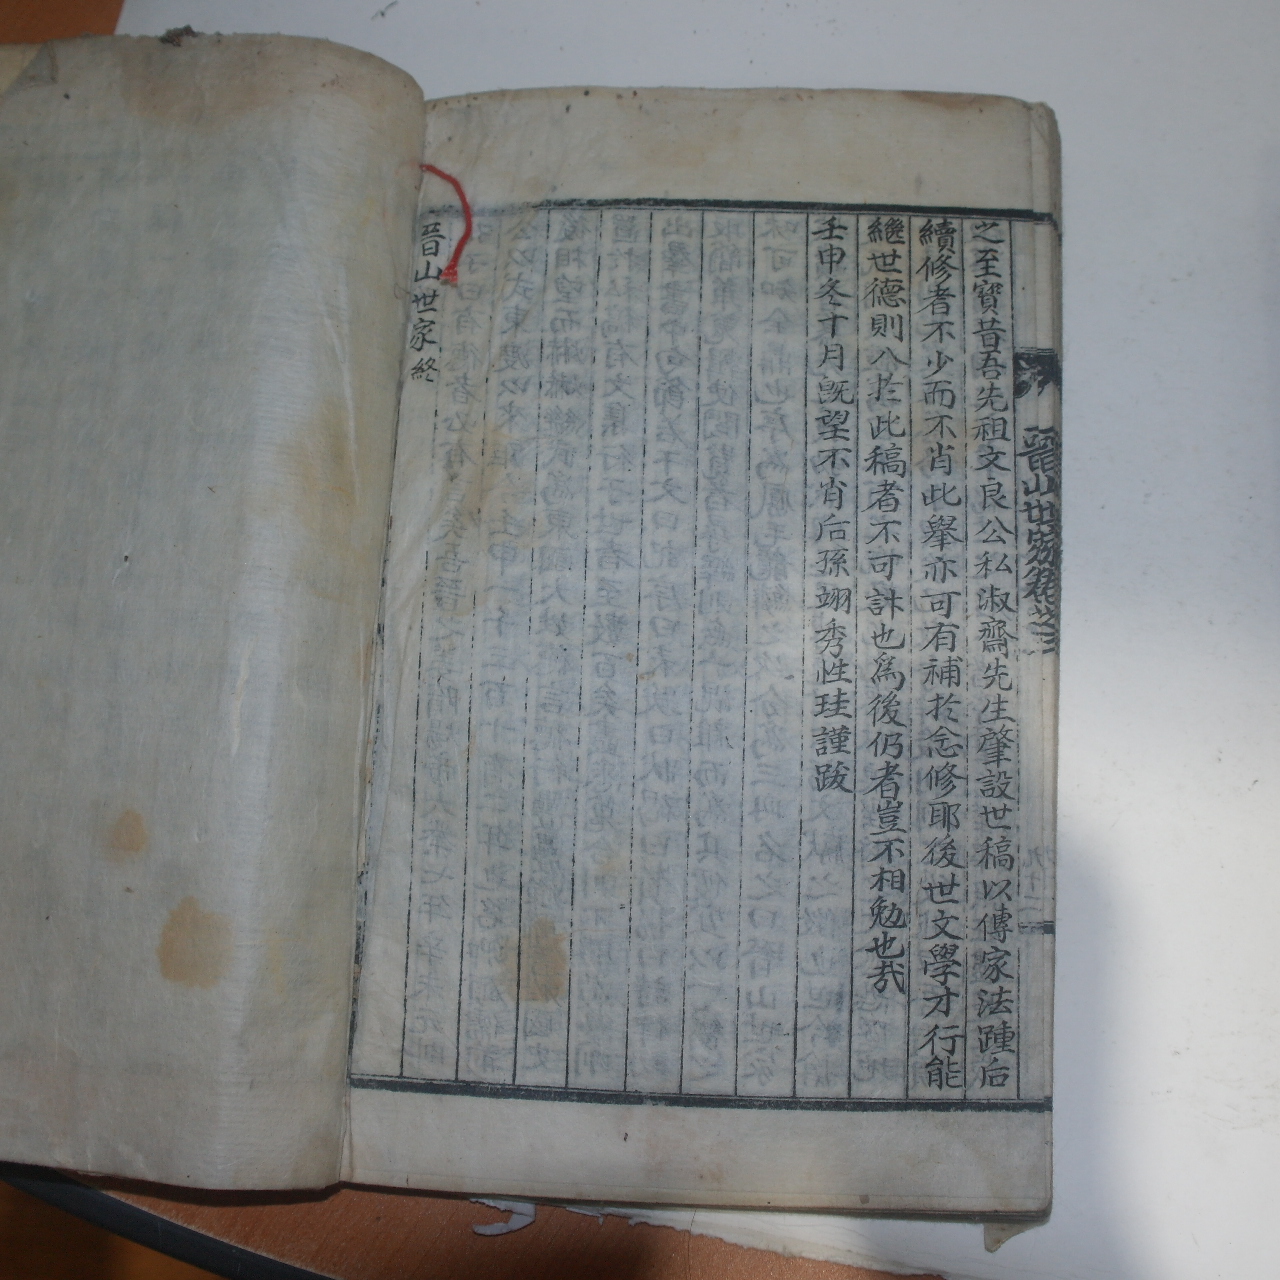 之至寶昔吾先祖文良公私淑齋先生肇設世稿以傳家法踵后
續修者不少而不肖此擧亦可有補於念修耶後世文學才行能
繼世德則入於此稿者不可計也爲後仍者豈不相勉也哉
壬申冬十月旣望不肖后孫翊秀性珪謹跋
晋山世家終
晉山世家卷之三
九十二